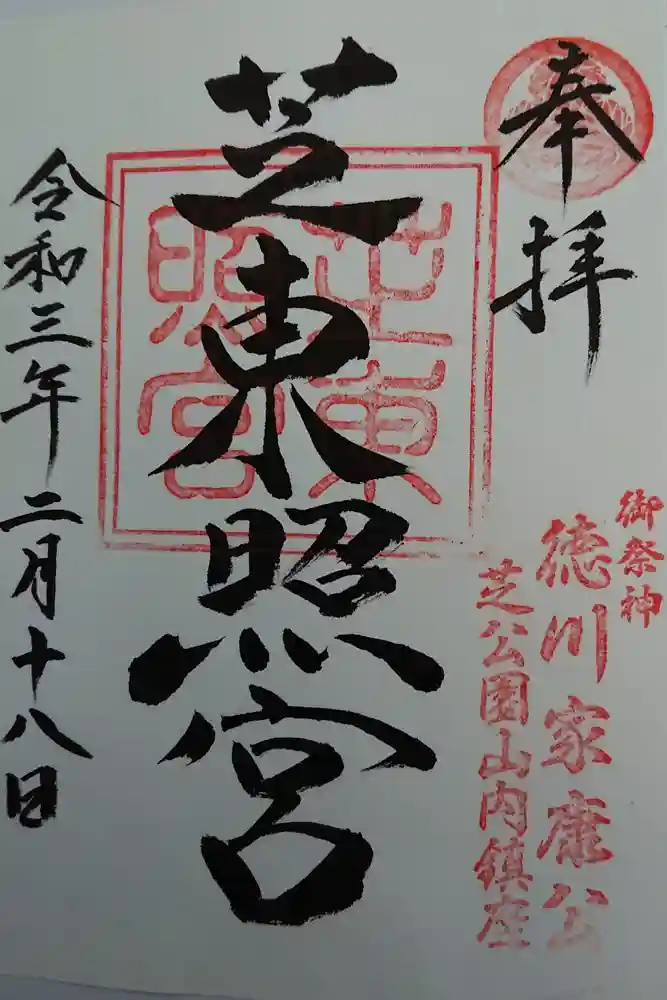 奉拝
御祭神
徳川家康公
芝公園山内鎮座
芝東照宮
芝東照宮
令和三年二月十八日